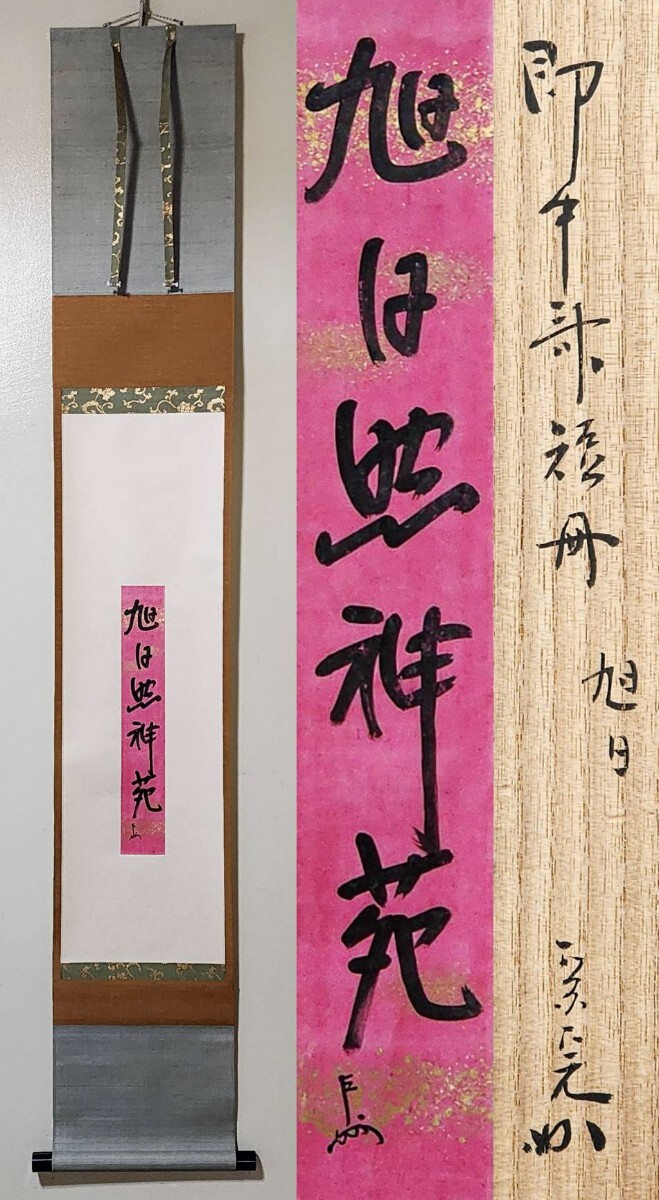 旭日照祥苑
旭日照祥苑
即中斎短冊
旭日